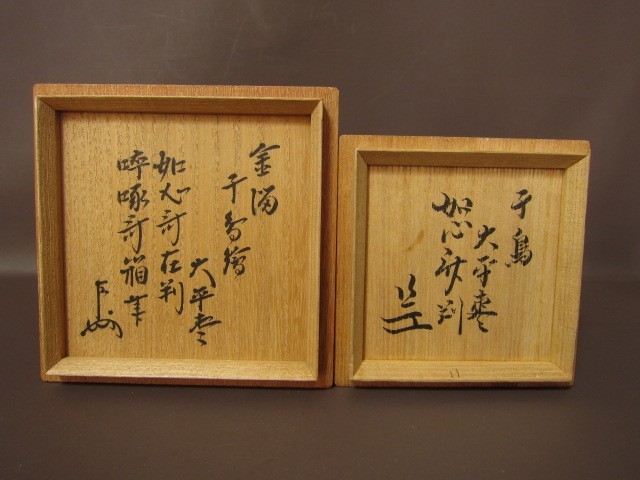 金溜
千鳥繪
大平棗
如心斎在判
啐啄斎箱年
千鳥
大平棗
如心斎判